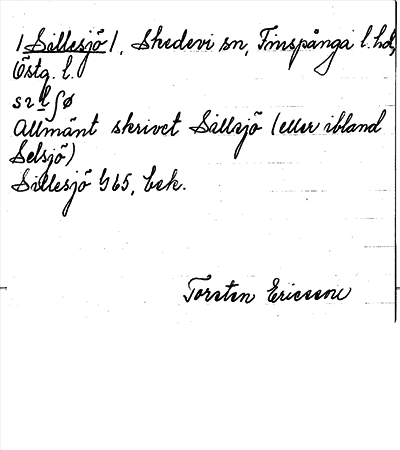 /Sillesjö/, Skedevi sn, Finspånga l. hd,
Östg. l.
Allmänt skrivet Sillsjö (eller ibland
Selsjö)
Sillesjö 1/4 65, bek.
Torsten Ericsson